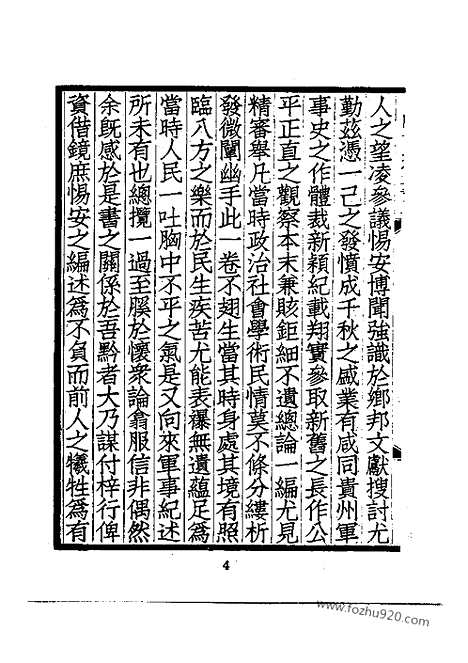 人之望凌參議惕安博聞強識於鄉邦文獻搜討尤
勤茲憑一己之發憤成千秋之盛業有咸同貴州軍
事史之作體裁新穎紀載翔實參取新舊之長作公
平正直之觀察本末兼賅鉅細不遺總論一編尤見
精審舉凡當時政治社會學術民情莫不條分縷析
發微闡幽手此一卷不翅生當其時身處其境有照
臨八方之樂而於民生疾苦尤能表襮無遺蘊足為
當時人民一吐胸中不平之氣是又向來軍事紀述
所未有也總攬一過至縢於懷衆論翕服信非偶然
余既感於是書之關係於吾黔者大乃謀付梓行俾
資借鏡庶惕安之編述爲不負而前人之犧牲爲有
4
www.fozhu920.com